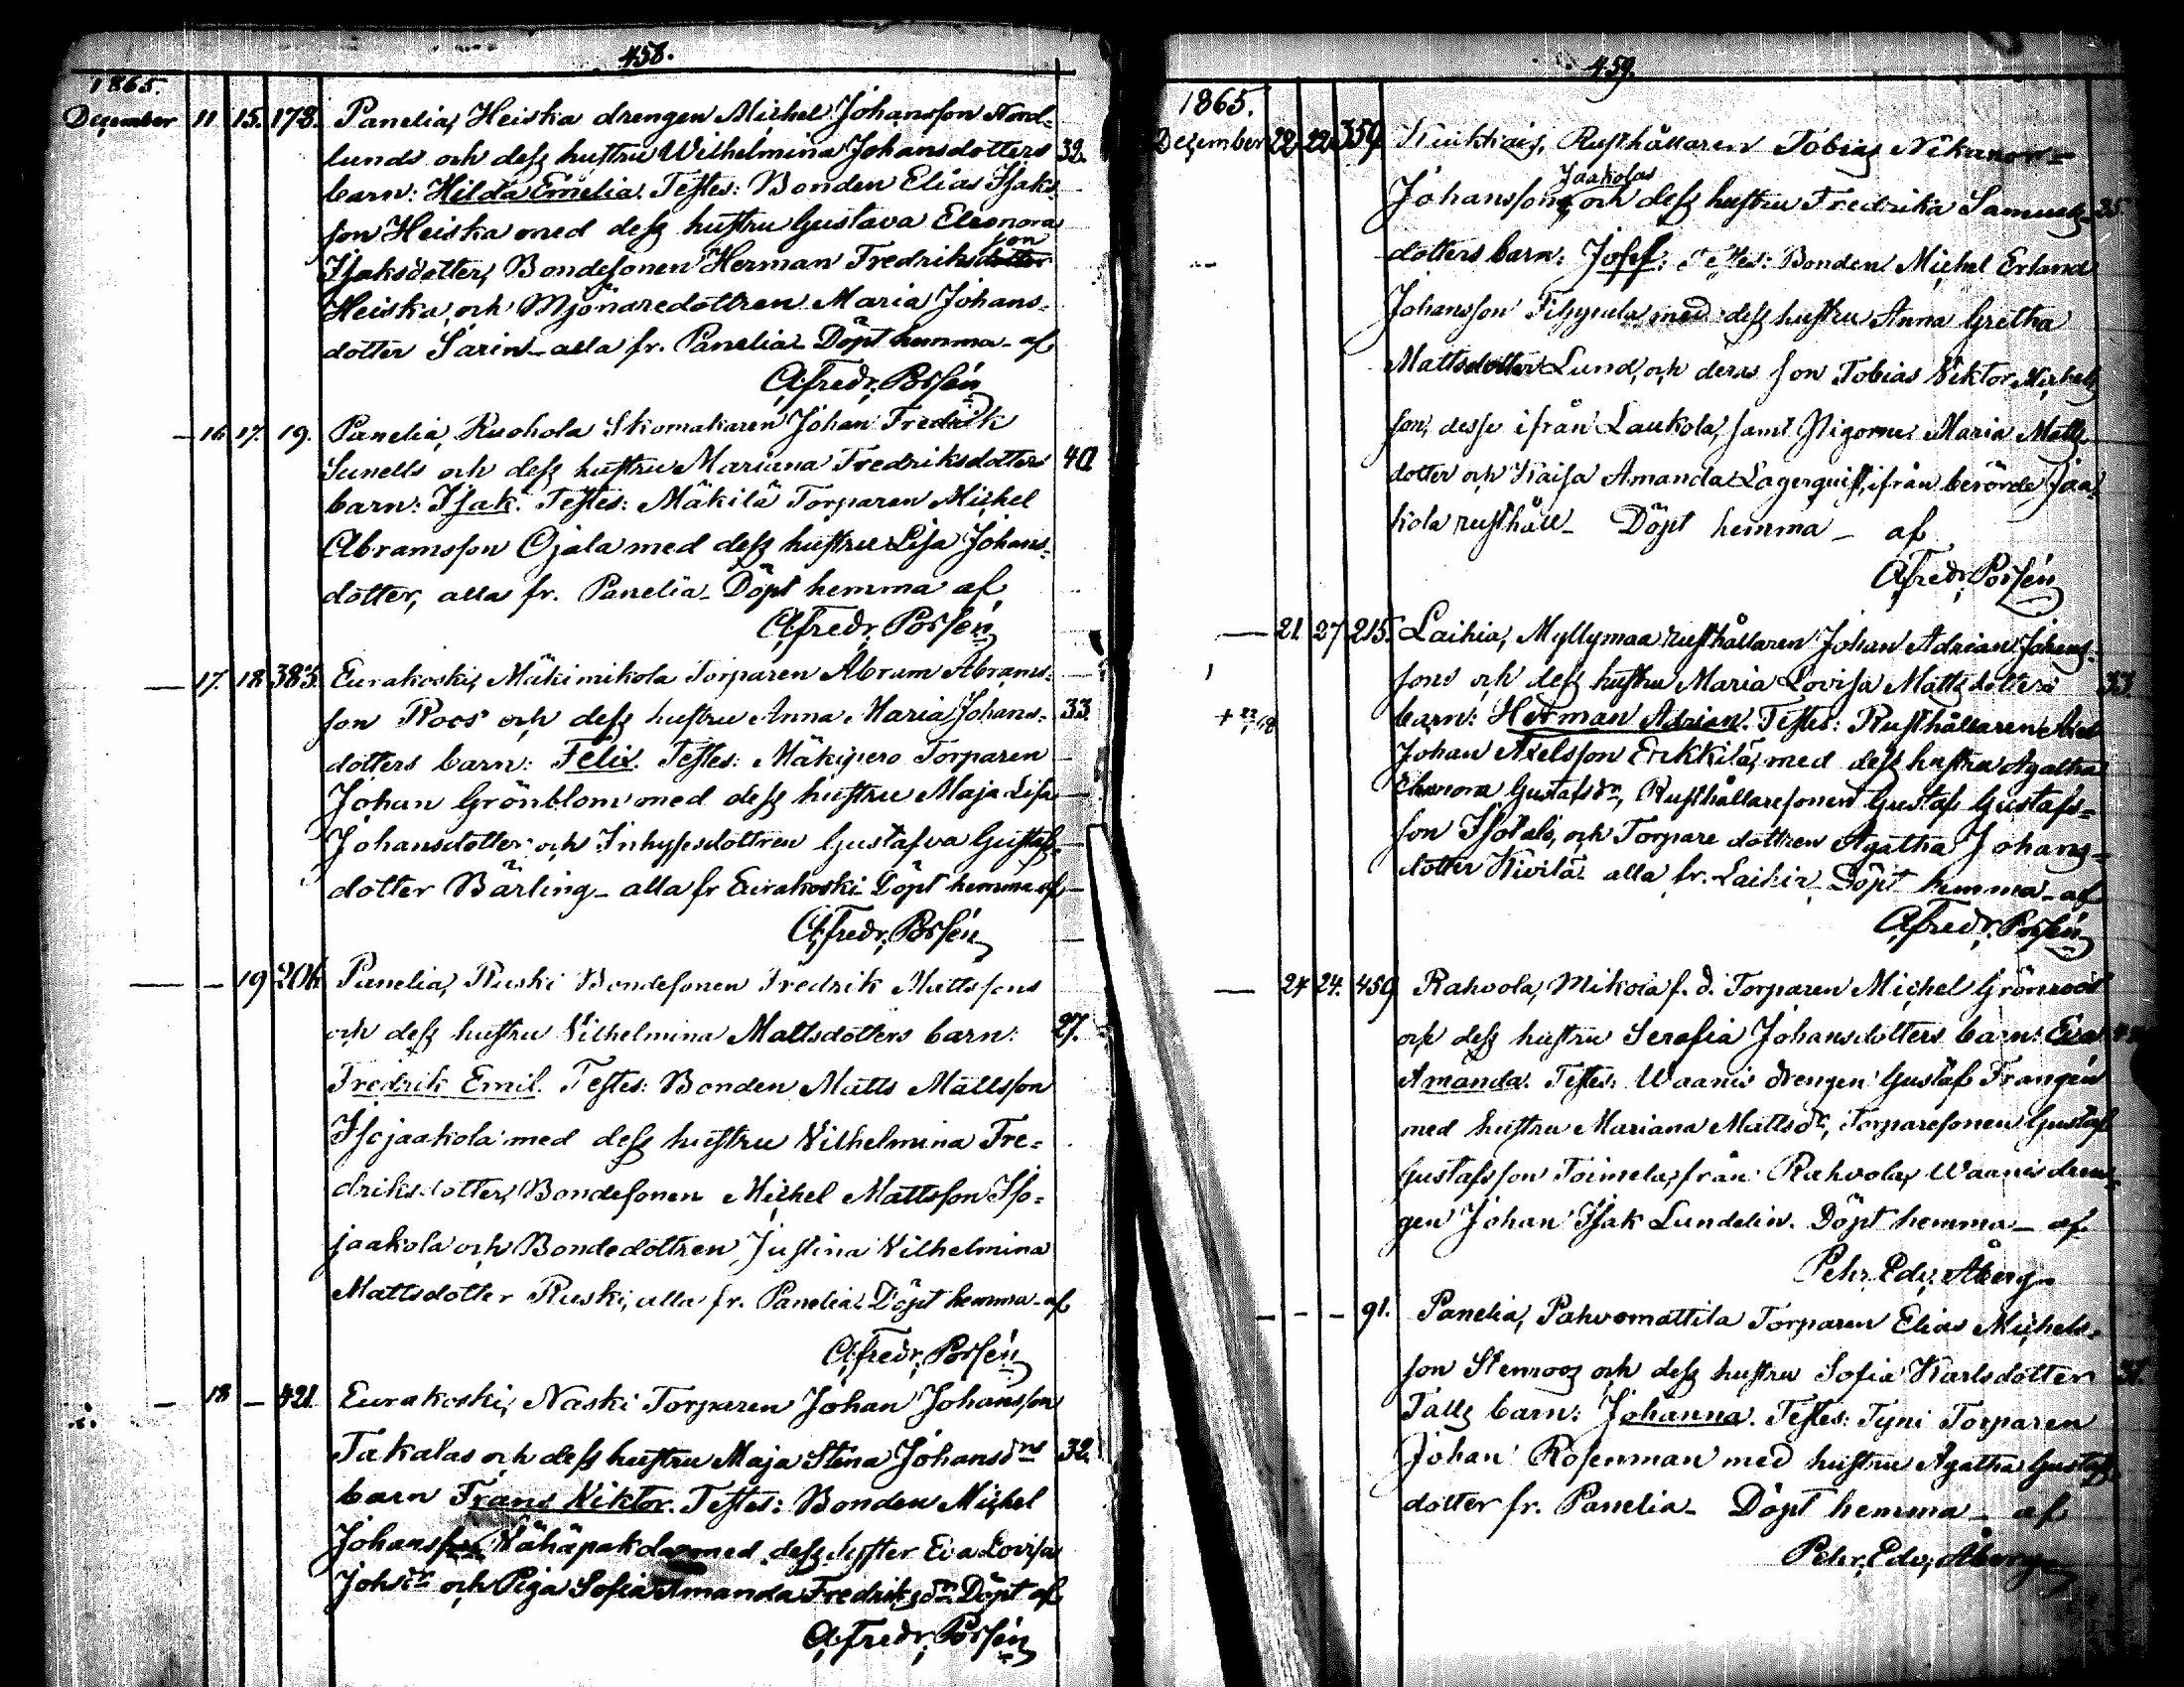 458.
1865.
December 11 15. 178. Panelia, Heiska drengen Michel Johansson Nord-
lunds och dess hustru Wilhelmina Johansdotters 32.
barn: Hilda Emelia. Testes: Bonden Elias Isaks-
son Heiska med dess hustru Gustava Eleonora
Isaksdotter, Bondesonen Herman Fredriksson
Heiska, och Mjönaredottren Maria Johans-
dotter Sarin – alla fr. Panelia – Döpt hemma – af
A. Fredr. Porsén
— 16. 17. 19. Panelia, Ruohola Skomakaren Johan Fredrik
Sunells och dess hustru Mariana Fredriksdotters 40
barn: Isak. Testes: Mäkilä Torparen Michel
Abramsson Ojala med dess hustru Lisa Johans-
dotter, alla fr. Panelia – Döpt hemma af
A. Fredr. Porsén
— 17. 18. 385. Eurakoski, Mäkimikola Torparen Abram Abrams-
son Roos och dess hustru Anna Maria Johans- 33.
dotters barn: Felix. Testes: Mäkipero Torparen
Johan Grönblom med dess hustru Maja Lisa
Johansdotter och Inhysesdottren Gustafva Gustafs-
dotter Bärling – alla fr Eurakoski Döpt hemma af
A. Fredr. Porsén
— – 19 206. Panelia, Ruski Bondesonen Fredrik Mattssons
och dess hustru Vilhelmina Mattsdotters barn: 27.
Fredrik Emil. Testes: Bonden Matts Mattsson
Isojaakola med dess hustru Vilhelmina Fre-
driksdotter, Bondesonen Michel Mattsson Iso-
jaakola och Bondedottren Justina Vilhelmina
Mattsdotter Ruski, alla fr. Panelia. Döpt hemma – af
A. Fredr. Porsén
– 18 – 421. Eurakoski, Naski Torparen Johan Johansson
Takalas och dess hustru Maja Stina Johansdrs 32.
barn Frans Viktor. Testes: Bonden Michel
Johansson Vähäpakola med dess syster Eva Lovisa
Johsdr och Piga Sofia Amanda Fredriksdr Döpt af
A. Fredr. Porsén
459.
1865.
December 22 22 359. Kiukkais, Rusthållaren Tobias Nikanor
Jaakolas
Johanssons och dess hustru Fredrika Samuels- 35.
dotters barn: Josef. Testes: Bonden Michel Erland
Johansson med dess hustru Anna Gretha
Mattsdotter Lund, och deras son Tobias Viktor Michels-
son, desse ifrån Laukola, samt Pigorne Maria Matts-
dotter och Kaisa Amanda Lagerquist, ifrån berörde Jaa-
kola rusthåll – Döpt hemma – af
A. Fredr. Porsén
— 21. 27 215. Laihia, Myllymaa rusthållaren Johan Adrian Johans-
sons och dess hustru Maria Lovisa Mattsdotters 33
barn: Herman Adrian. Testes: Rusthållaren
Johan Axelsson Erkkilä, med dess hustru Agatha
Eleonora Gustafsdr, Rusthållaresonen Gustaf Gustafs-
son Isotalo, och Torpare dottren Agatha Johans-
dotter Kivilä alla fr. Laihia – Döpt hemma – af
A. Fredr. Porsén
— 24 24. 459 Rahvola, Mikola f. d. Torparen Michel Grönroos
och dess hustru Serafia Johansdotters barn: Eva
Amanda. Testes: Waanis drengen Gustaf Frangén
med hustru Mariana Mattsdr, Torparesonen Gustaf
Gustafsson Toimela, från Rahvola, Waanis dren-
gen Johan Isak Lundelin. Döpt hemma – af
Pehr. Edv. Åberg
– – – 91. Panelia, Pahvomattila Torparen Elias Michels-
son Stenroos och dess hustru Sofia Karlsdotter 31.
Talls barn: Johanna. Testes: Tyni Torparen
Johan Rosenman med hustru Agatha Gustafs-
dotter fr. Panelia – Döpt hemma – af
Pehr. Edv. Åberg